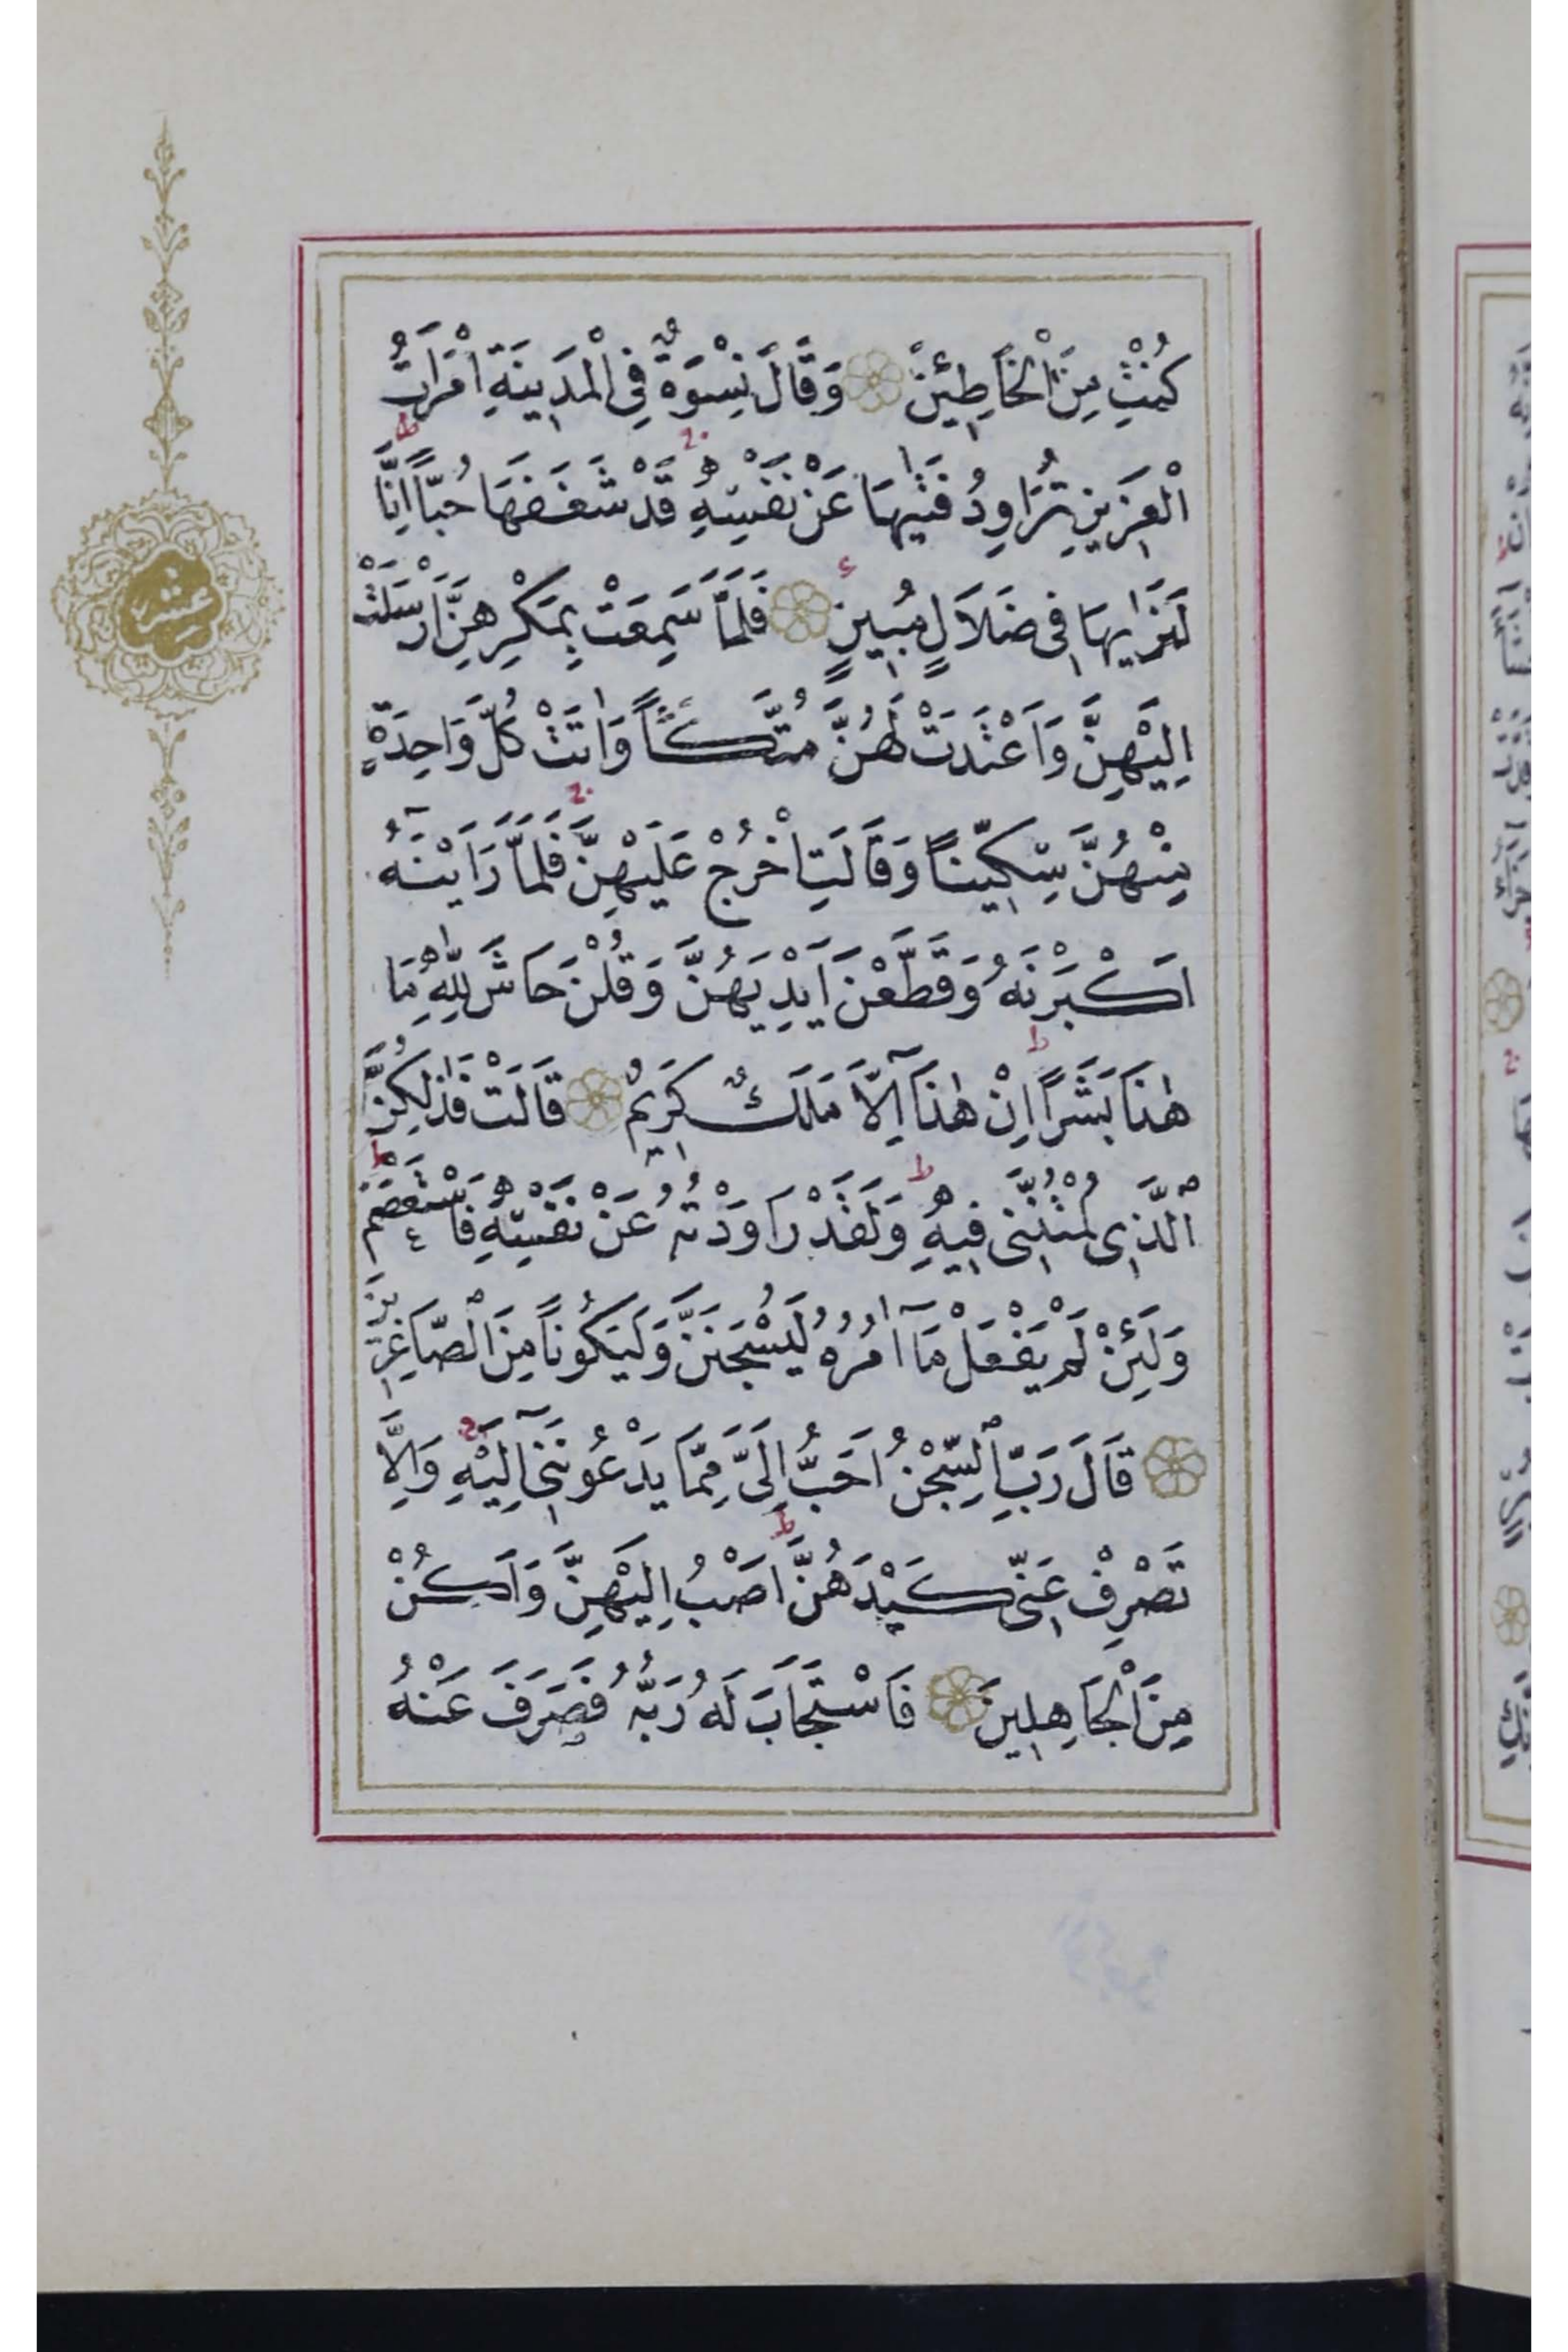 كُنْتِ مِنَ الْخَاطِئِينَ وَقَالَ نِسْوَةٌ فِي الْمَدِينَةِ امْرَاَتُ
الْعَزِيزِ تُرَاوِدُ فَتٰيهَا عَنْ نَفْسِهِ قَدْ شَغَفَهَا حُبًّا اِنَّا
لَنَرٰيهَا فِى ضَلَالٍ مُبِينٍ فَلَمَّا سَمِعَتْ بِمَكْرِهِنَّ اَرْسَلَتْ
اِلَيْهِنَّ وَاَعْتَدَتْ لَهُنَّ مُتَّكَـًٔا وَاٰتَتْ كُلَّ وَاحِدَةٍ
مِنْهُنَّ سِكِّينًا وَقَالَتِ اخْرُجْ عَلَيْهِنَّ فَلَمَّا رَاَيْنَهُٓ
اَكْبَرْنَهُ وَقَطَّعْنَ اَيْدِيَهُنَّ وَقُلْنَ حَاشَ لِلّٰهِ مَا
هٰذَا بَشَرًا اِنْ هٰذَٓا اِلَّا مَلَكٌ كَرِيمٌ قَالَتْ فَذٰلِكُنَّ
الَّذِى لُمْتُنَّنِى فِيهِ وَلَقَدْ رَاوَدْتُهُ عَنْ نَفْسِهِ فَاسْتَعْصَمَ
وَلَئِنْ لَمْ يَفْعَلْ مَٓا اٰمُرُهُ لَيُسْجَنَنَّ وَلَيَكُونًا مِنَ الصَّاغِرِينَ
قَالَ رَبِّ السِّجْنُ اَحَبُّ اِلَىَّ مِمَّا يَدْعُونَنِٓى اِلَيْهِ وَاِلَّا
تَصْرِفْ عَنِّى كَيْدَهُنَّ اَصْبُ اِلَيْهِنَّ وَاَكُنْ
مِنَ الْجَاهِلِينَ فَاسْتَجَابَ لَهُ رَبُّهُ فَصَرَفَ عَنْهُ
عشر